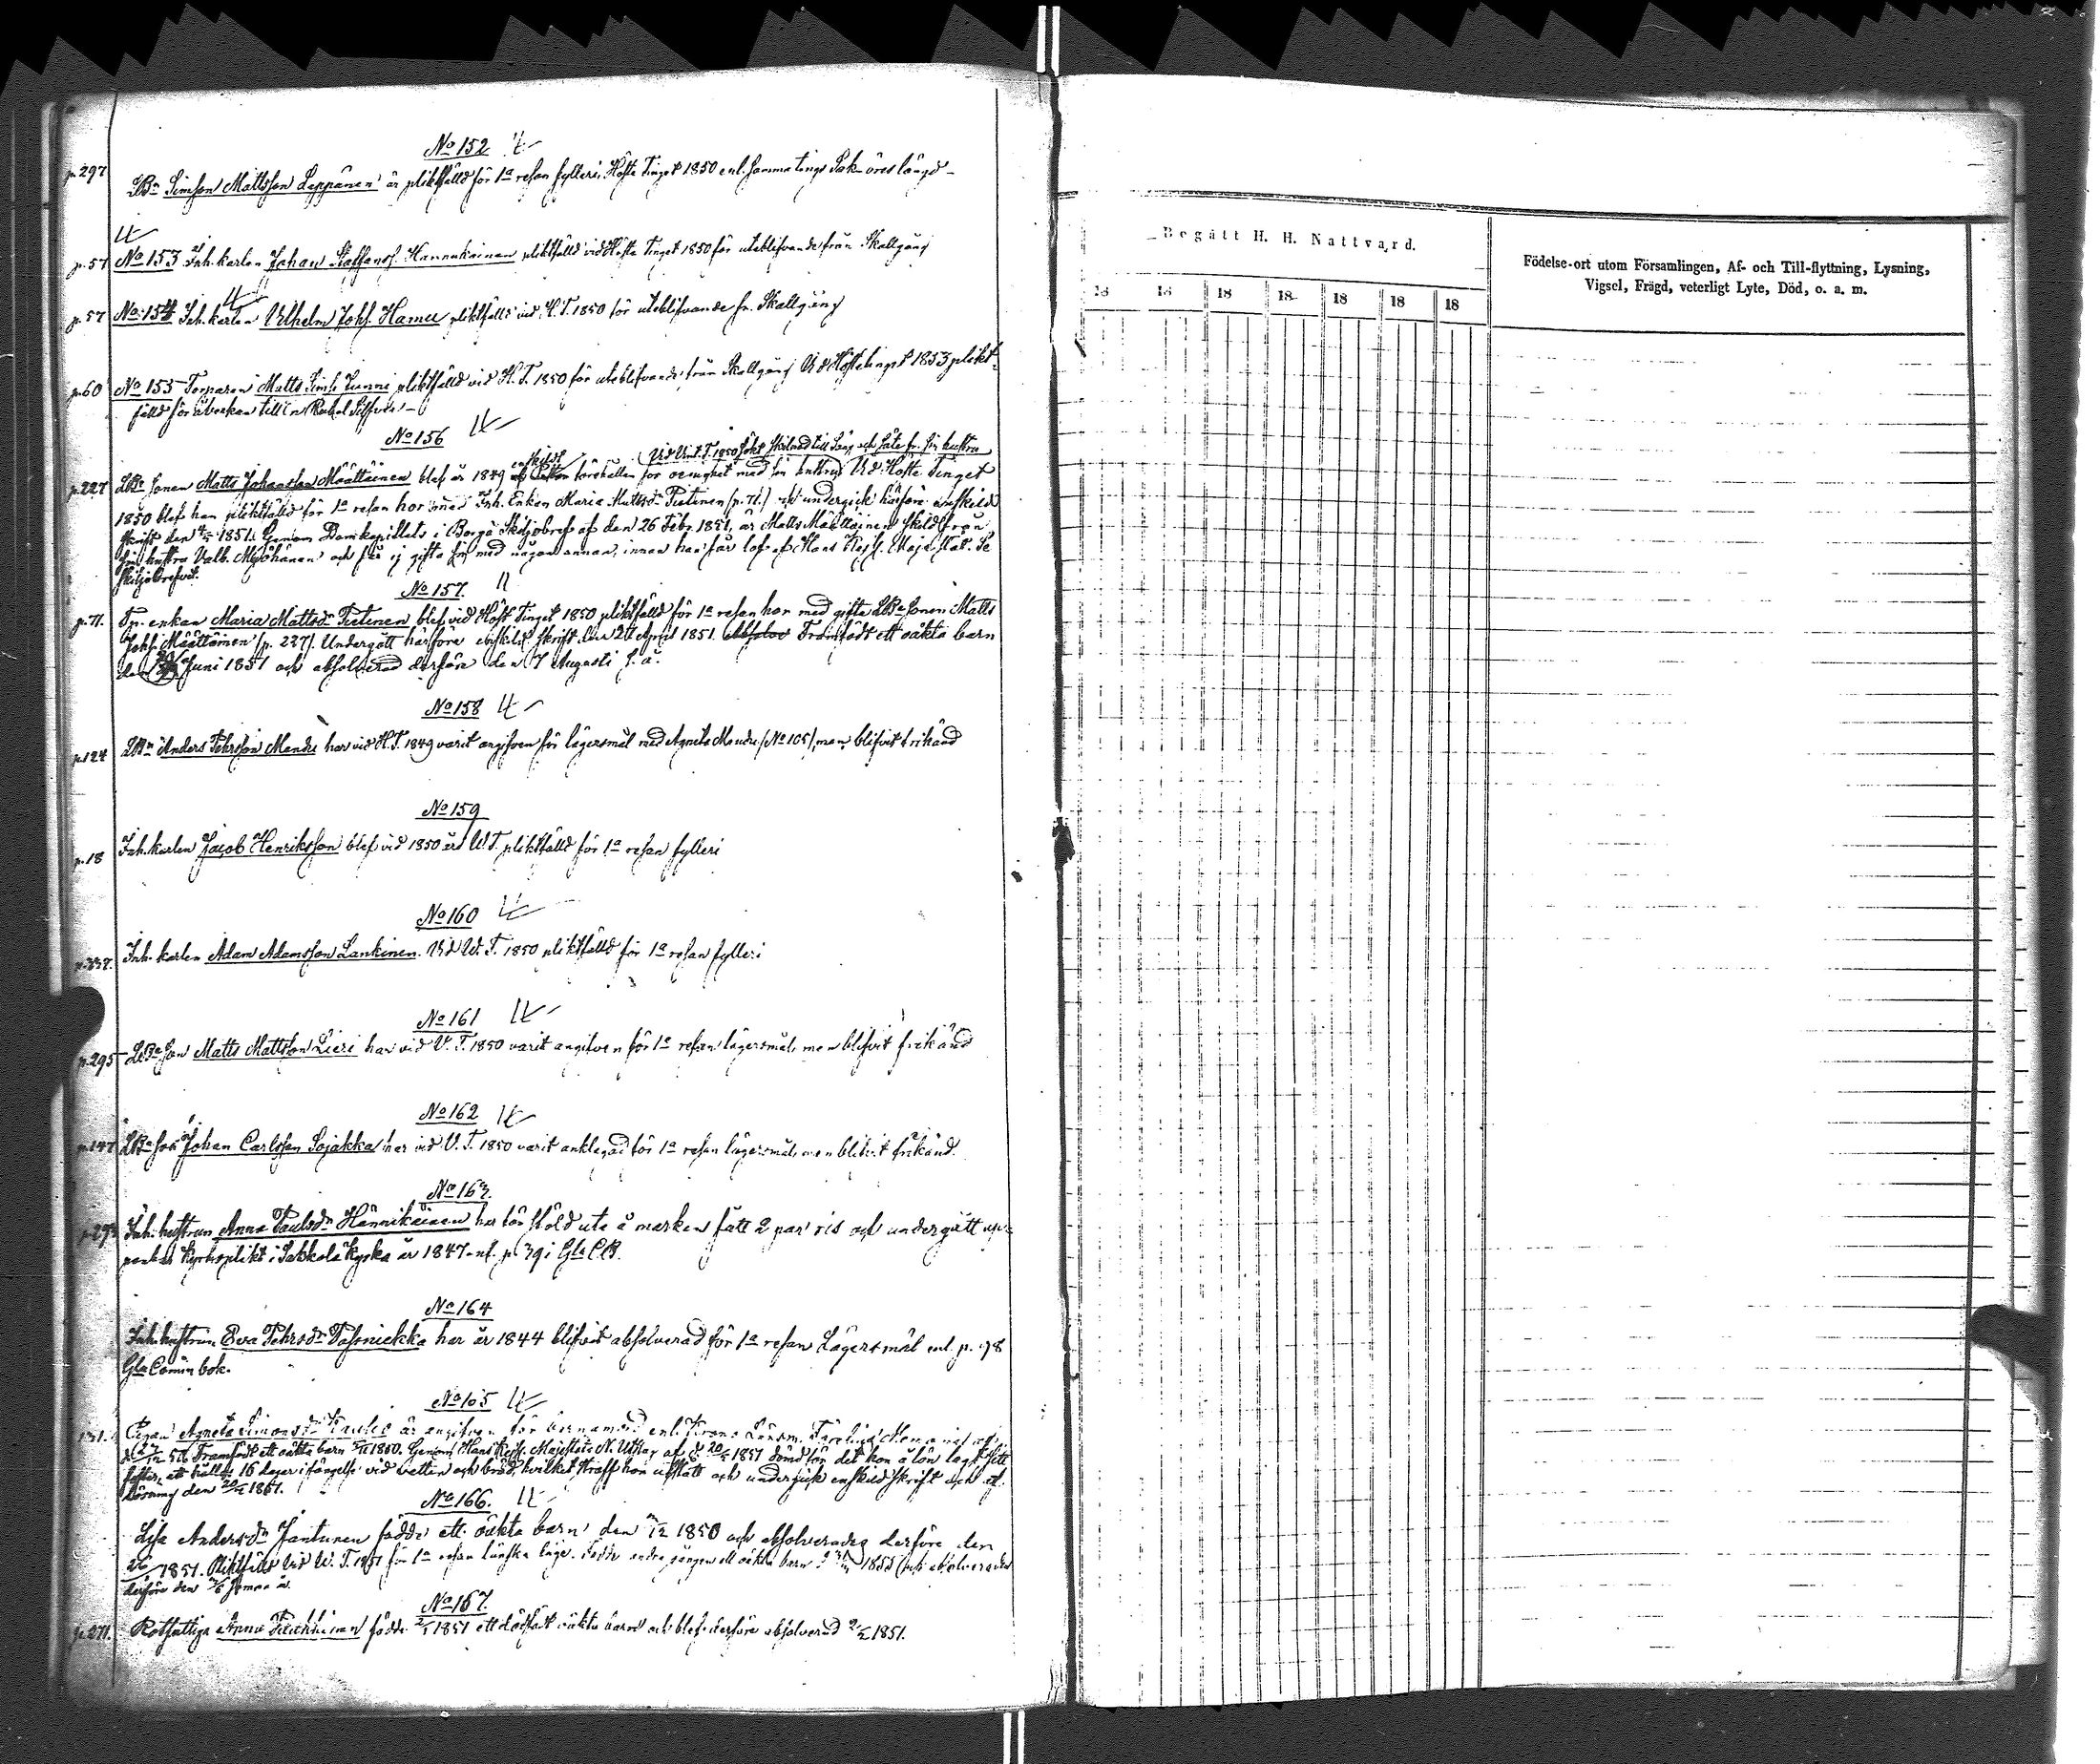 No 152
p. 297 LBn Simson Mattsson Leppänen är pliktfälld för 1a resan fylleri Höste Tinget 1850 enl. samma tings Saköreslängd
p. 57 No 153 Inh. karlen Johan Staffanss. Hannukainen pliktfälld vid Höste Tinget 1850 för uteblifvande från Skallgång
p. 57 No 154 Inh. karlen Vilhelm Johs. Hamu pliktfälld vid H. T. 1850 för uteblifvande fr. Skallgång
p. 60 No 155 Torparen Matts Sims. Junni pliktfälld vid H. T. 1850 för uteblifvande från Skallgång Vid Höstetinget 1853 plikt-
fälld för åverkan till
No 156
enskildt Vid Vint. T. 1850 sökt skilnad till säng och säte fr. sin hustru
p. 227 LBe sonen Matts Johansson Määttäinen blef år 1849 förehållen för oenighet med sin hustru Vid Höste Tinget
1850 blef han pliktfälld för 1a resan hor med Inh. Enkan Maria Mattsdr Tietinen (p. 71.) och undergick härföre enskild
skrift den 1851. Genom Domkapitlets i Borgå Skiljobref af den 26 Febr. 1851, är Matts Määttäinen skild från
sin hustru Valb. Myöhänen och får ej gifta sig med någon annan, innan han får lof af Hans Kejs. Majestät. Se
skiljobrefvet.
No 157.
p. 71. Tp. enkan Maria Mattsdr Tietinen blef vid Höst Tinget 1850 pliktfälld för 1a resan hor med gifte LBe sonen Matts
Johs. Määttäinen (p. 227). Undergått härföre enskild skrift den 21 April 1851. Framfödt ett oäkta barn
den Juni 1851 och absolverad derföre den 7 Augusti s. å.
No 158
p. 124 LBn Anders Pehrsson Mendre har vid H. T. 1849 varit angifven för lägersmål med Agneta Mendre (No 105), men blifvit frikänd
No 159
p. 18 Inh. karlen Jacob Henriksson blef vid 1850 års V. T. pliktfälld för 1a resan fylleri
No 160
p. 337. Inh. karlen Adam Adamsson Lankinen. Vid W. T. 1850 pliktfälld för 1a resan fylleri
No 161
p. 295 LBe Son Matts Mattsson Lieri har vid V. T. 1850 varit angifven för 1a resan lägersmål, men blifvit frikänd
No 162
p. 147 LBe son Johan Carlsson Sojakka har vid V. T. 1850 varit anklagad för 1a resan lägersmål, men blifvit frikänd.
No 163.
Inh. hustrun Anna Paulsdr Hännikäinen har för stöld ute å marken fått 2 par ris och undergått up-
penbar Kyrkoplikt i Sakkola kyrka år 1847 enl. p. 39 i Gla C.B.
No 164
Inh. hustrun Eva Pehrsdr Vasnickka har år 1844 blifvit absolverad för 1a resan Lägersmål enl. p. 98
Gla Comm. bok.
No 165
Pigan Agneta Simonsdr Paukku är angifven för barnamord enl.
Framfödt ett oäkta barn 1850. Genom Hans Kejs. Majestäts N. Utslag af d. 1851 dömd för det hon å lön lagt sitt
foster, att hållas 16 dagar i fängelse vid vatten och bröd, hvilket straff hon utstått och undergick enskild skrift och af-
lösning den 1851.
No 166.
Lisa Andersdr Jantunen födde ett oäkta barn den 1850 och absolverades derföre den
1851. Pliktfälld vid W. T. 1851 för 1a resan lönska läge. Födde andra gången ett oäkta barn 1855 och absolverades
derföre den samma år.
No 167.
p. 271. Rotfattiga Anna födde 1851 ett dödfödt oäkta barn och blef derföre absolverad 1851.
Begått H. H. Nattvard.
Födelse-ort utom Församlingen, Af- och Till-flyttning, Lysning,
Vigsel, Frägd, veterligt Lyte, Död, o. a. m.
18 18 18 18 18 18 18